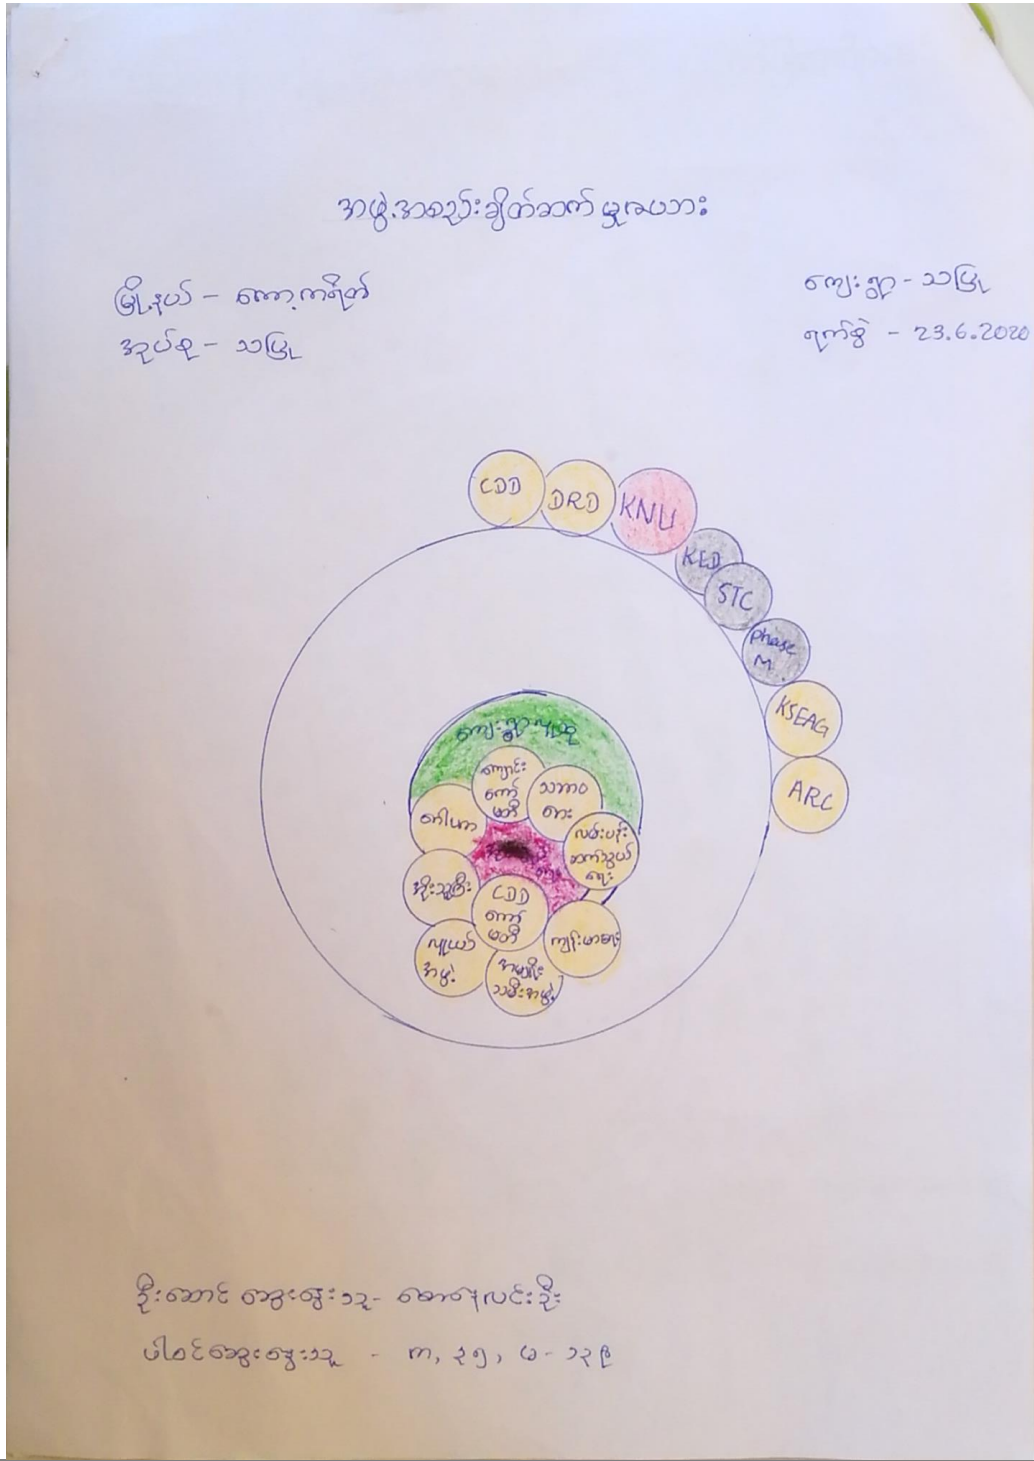 အဖွဲ့အစည်းချိတ်ဆက်မှုဇယား
မြို့နယ် - ကော့ကရိတ်
ကျေးရွာ - သပြု
အုပ်စု - သပြု
ရက်စွဲ - 23.6.2020
CDD
DRD
KNU
KED
STC
phase
M
KSEAG
ARC
ကျေးရွာလူထု
ကျောင်း
ကော်
မတီ
သဘာဝ
လမ်းပန်း
ဆက်သွယ်
ရေး
CDD
ကော်
မတီ
ကျန်းမာရေး
လူငယ်
အဖွဲ့
အမျိုး
သမီးအဖွဲ့
ဦးဆောင်ဆွေးနွေးသူ-
ပါဝင်ဆွေးနွေးသူ - က, ၃၅, မ - ၁၃၉